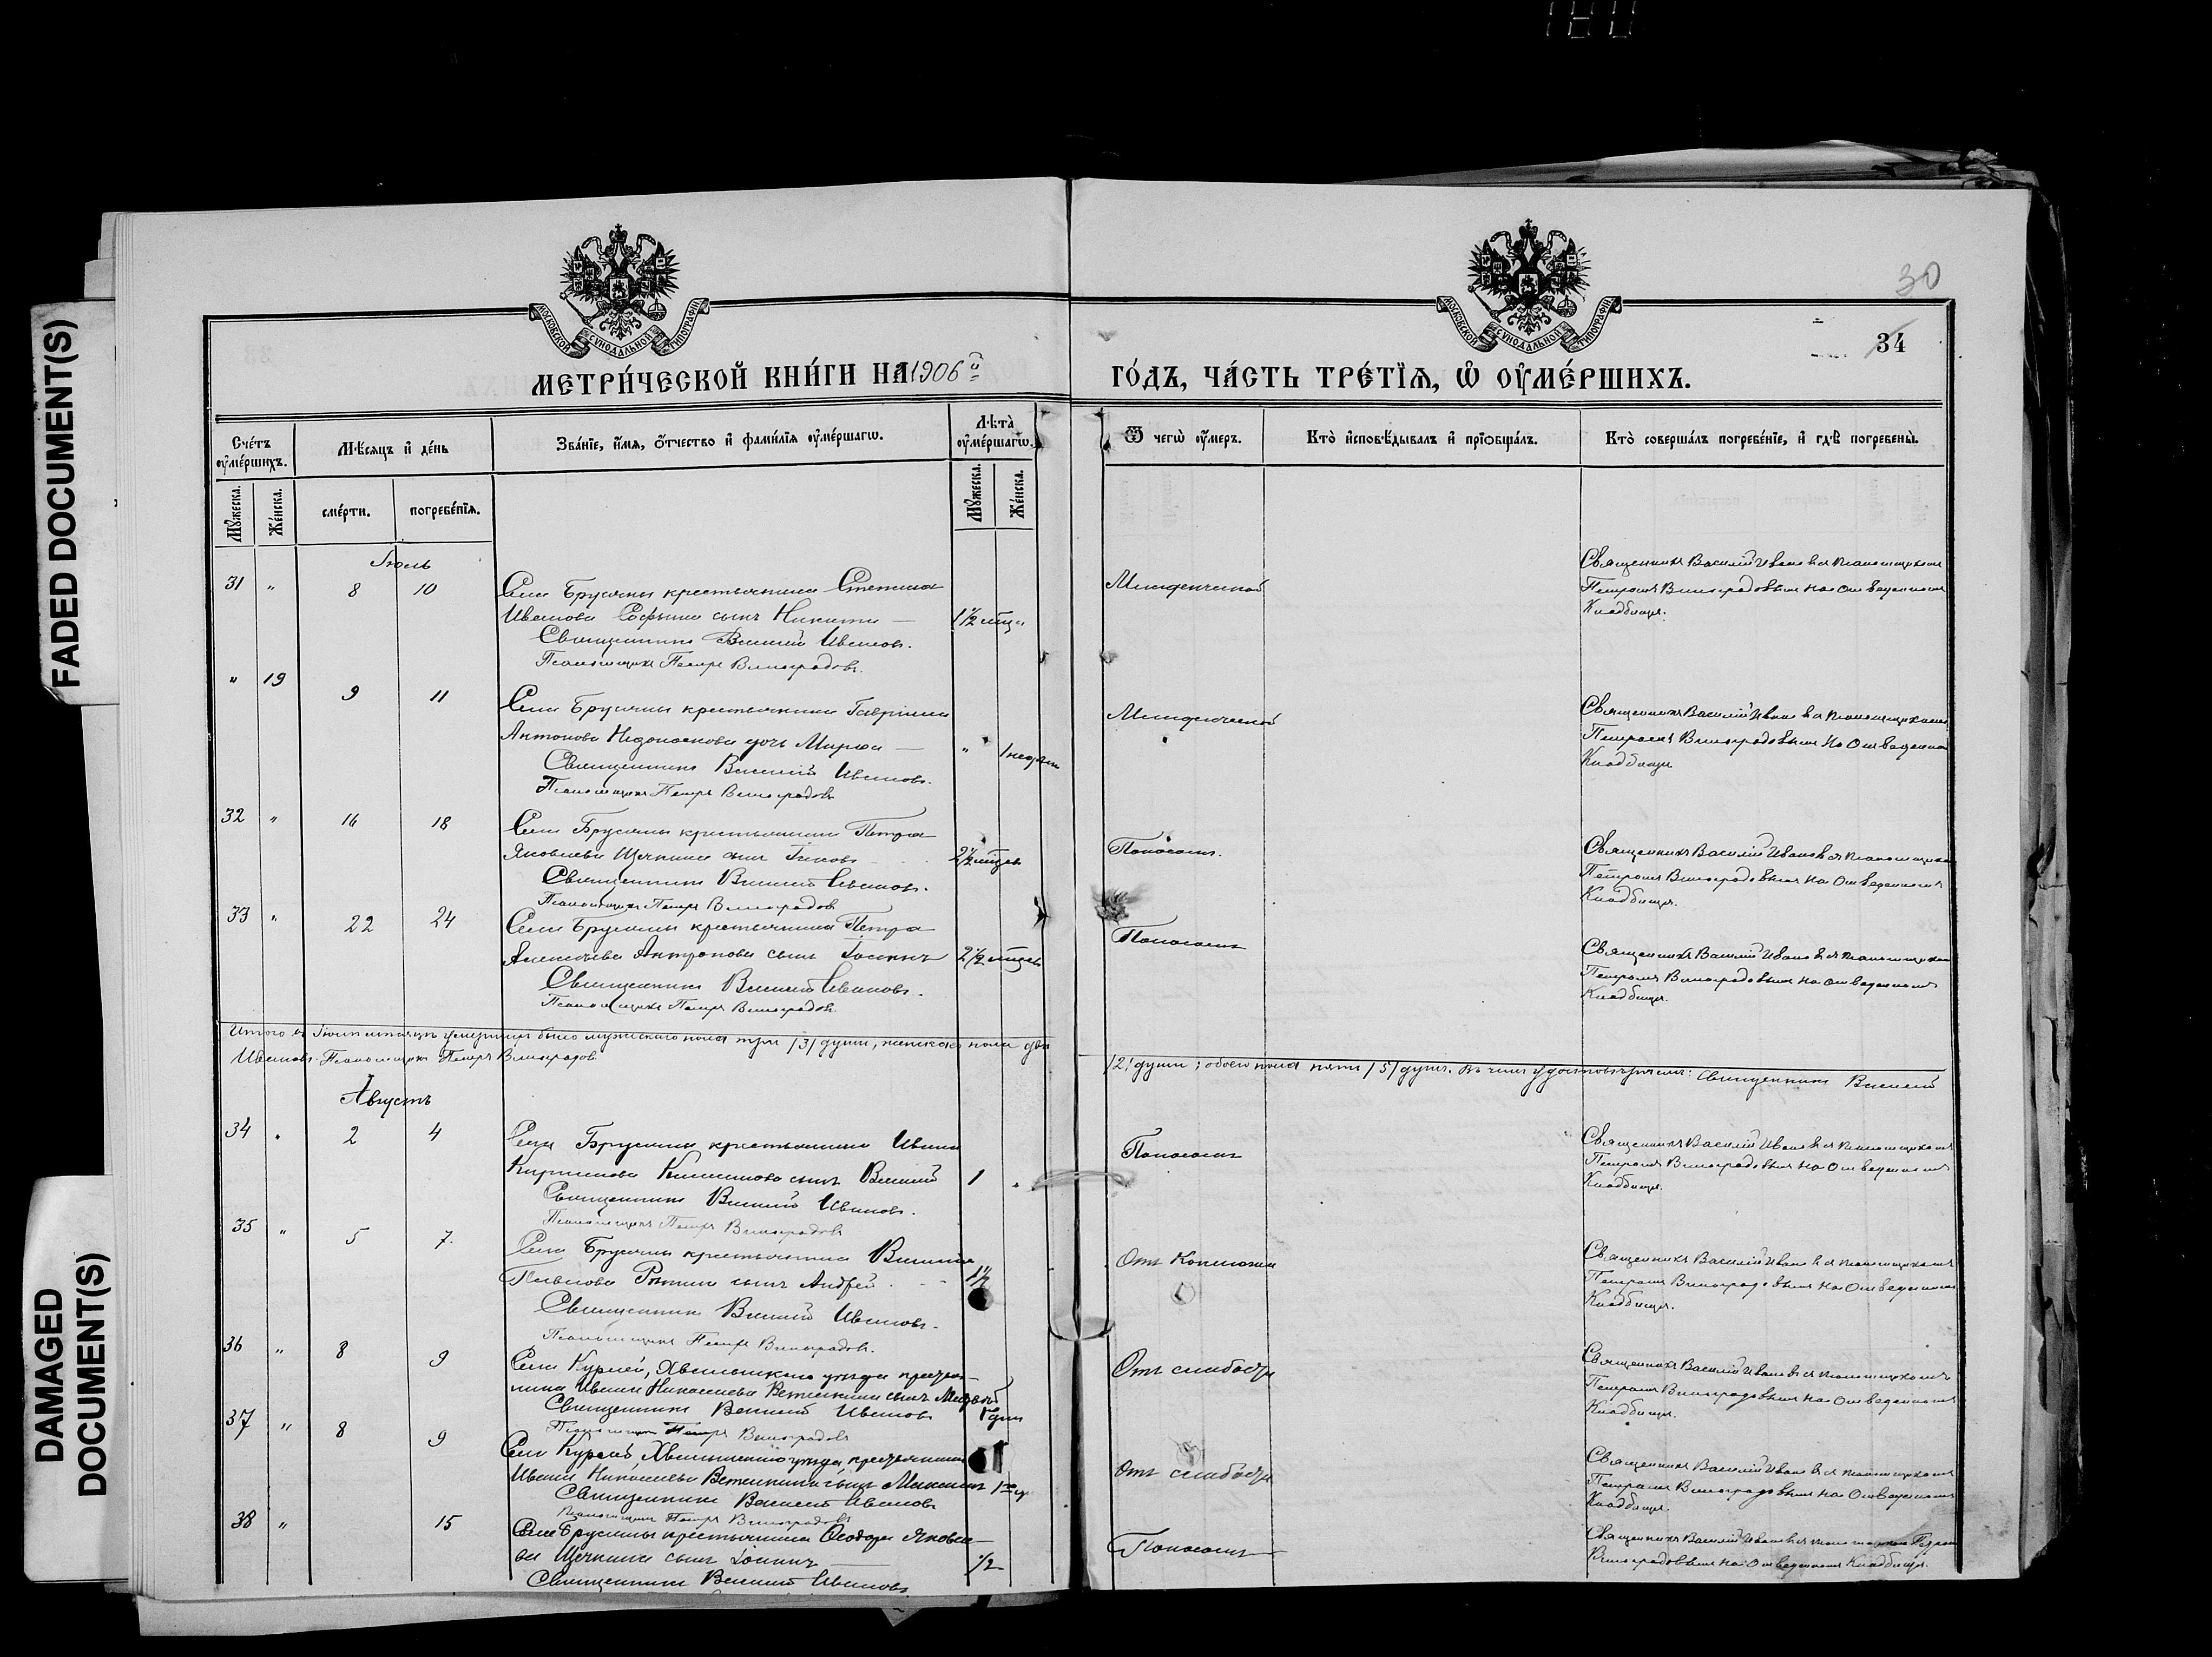 FADED DOCUMENT(S)
DAMAGED DOCUMENT(S)
30
34
МОСКОВСКОЙ СѴНОДАЛЬНОЙ ТИПОГРАФІИ
МОСКОВСКОЙ СѴНОДАЛЬНОЙ ТИПОГРАФІИ
МЕТРИ́ЧЕСКОЙ КНИ́ГИ НА 1906й
ГО́ДЪ, ЧА́СТЬ ТРЕ́ТІѦ, Ѡ҆ ОУ҆МЕ́РШИХЪ.
Сче́тъ оу҆ме́ршихъ.
Мѣ́сяцъ и҆ де́нь
Зва́ніе, и҆́мя, ѻ҆́тчество и҆ фами́лія оу҆ме́ршагѡ.
Лѣта̀ оу҆ме́ршагѡ.
Ѿ чегѡ̀ оу҆́меръ.
Кто̀ и҆сповѣ́дывалъ и҆ прїѻбща́лъ.
Кто̀ соверша́лъ погребе́ніе, и҆ гдѣ̀ погребены̀.
Мꙋ́жеска.
Же́нска.
сме́рти.
погребе́нія.
Мꙋ́жеска.
Же́нска.
Іюль
31 " 8 10 Села Брусяны крестьянина Степана
Иванова Софьина сынъ Никита — 1 1/2 мца
Священникъ Василій Ивановъ.
Псаломщикъ Петръ Виноградовъ.
Младенческой
Священникъ Василій Ивановъ съ псаломщикомъ
Петромъ Виноградовымъ на отведенномъ
Кладбищѣ.
" 19 9 11 Села Брусяны крестьянина Гавріила
Антонова Недоноскова дочь Марія — " 1 недѣли
Священникъ Василій Ивановъ.
Псаломщикъ Петръ Виноградовъ
Младенческой
Священникъ Василій Ивановъ съ псаломщикомъ
Петромъ Виноградовымъ на отведенномъ
Кладбищѣ
32 " 16 18 Села Брусяны крестьянина Петра
Яковлева Щечкина сынъ Іаковъ 2 1/2 мцевъ
Священникъ Василій Ивановъ.
Псаломщикъ Петръ Виноградовъ
Поносомъ.
Священникъ Василій Ивановъ съ псаломщикомъ
Петромъ Виноградовымъ на отведенномъ
Кладбищѣ.
33 " 22 24 Села Брусяны крестьянина Петра
Алексѣева Антропова сынъ Іоаннъ 2 1/2 мцевъ
Священникъ Василій Ивановъ.
Псаломщикъ Петръ Виноградовъ.
Поносомъ
Священникъ Василій Ивановъ съ псаломщикомъ
Петромъ Виноградовымъ на отведенномъ
Кладбищѣ.
Итого въ Іюлѣ мѣсяцѣ умершихъ было мужескаго пола три /3/ души, женскаго пола двѣ
/2/ души; обоего пола пять /5/ душъ. Въ чемъ удостовѣряемъ: Священникъ Василій
Ивановъ. Псаломщикъ Петръ Виноградовъ.
Августъ
34 " 2 4 Села Брусяны крестьянина Ивана
сынъ Василій 1 "
Священникъ Василій Ивановъ.
Псаломщикъ Петръ Виноградовъ
Поносомъ
Священникъ Василій Ивановъ съ псаломщикомъ
Петромъ Виноградовымъ на отведенномъ
Кладбищѣ.
35 " 5 7. Села Брусяны крестьянина Василія
Павлова сынъ Андрей. 1 1/2
Священникъ Василій Ивановъ.
Псаломщикъ Петръ Виноградовъ.
Отъ
Священникъ Василій Ивановъ съ псаломщикомъ
Петромъ Виноградовымъ на отведенномъ
Кладбищѣ.
36 " 8 9 Села Хвалынскаго уѣзда крестья-
нина Ивана сынъ
Священникъ Василій Ивановъ
Псаломщикъ Петръ Виноградовъ
Отъ слабости
Священникъ Василій Ивановъ съ псаломщикомъ
Петромъ Виноградовымъ на отведенномъ
Кладбищѣ.
37 " 8 9 Села Хвалынскаго уѣзда, крестьянина
Ивана сынъ
Священникъ Василій Ивановъ
Псаломщикъ Петръ Виноградовъ
Отъ слабости
Священникъ Василій Ивановъ съ псаломщикомъ
Петромъ Виноградовымъ на отведенномъ
Кладбищѣ.
38 " 15 Села Брусяны крестьянина Ѳеодора Яковле-
ва Щечкина сынъ Іоаннъ — 1/2
Священникъ Василій Ивановъ
Поносомъ
Священникъ Василій Ивановъ съ псаломщикомъ Петромъ
Виноградовымъ на отведенномъ Кладбищѣ.